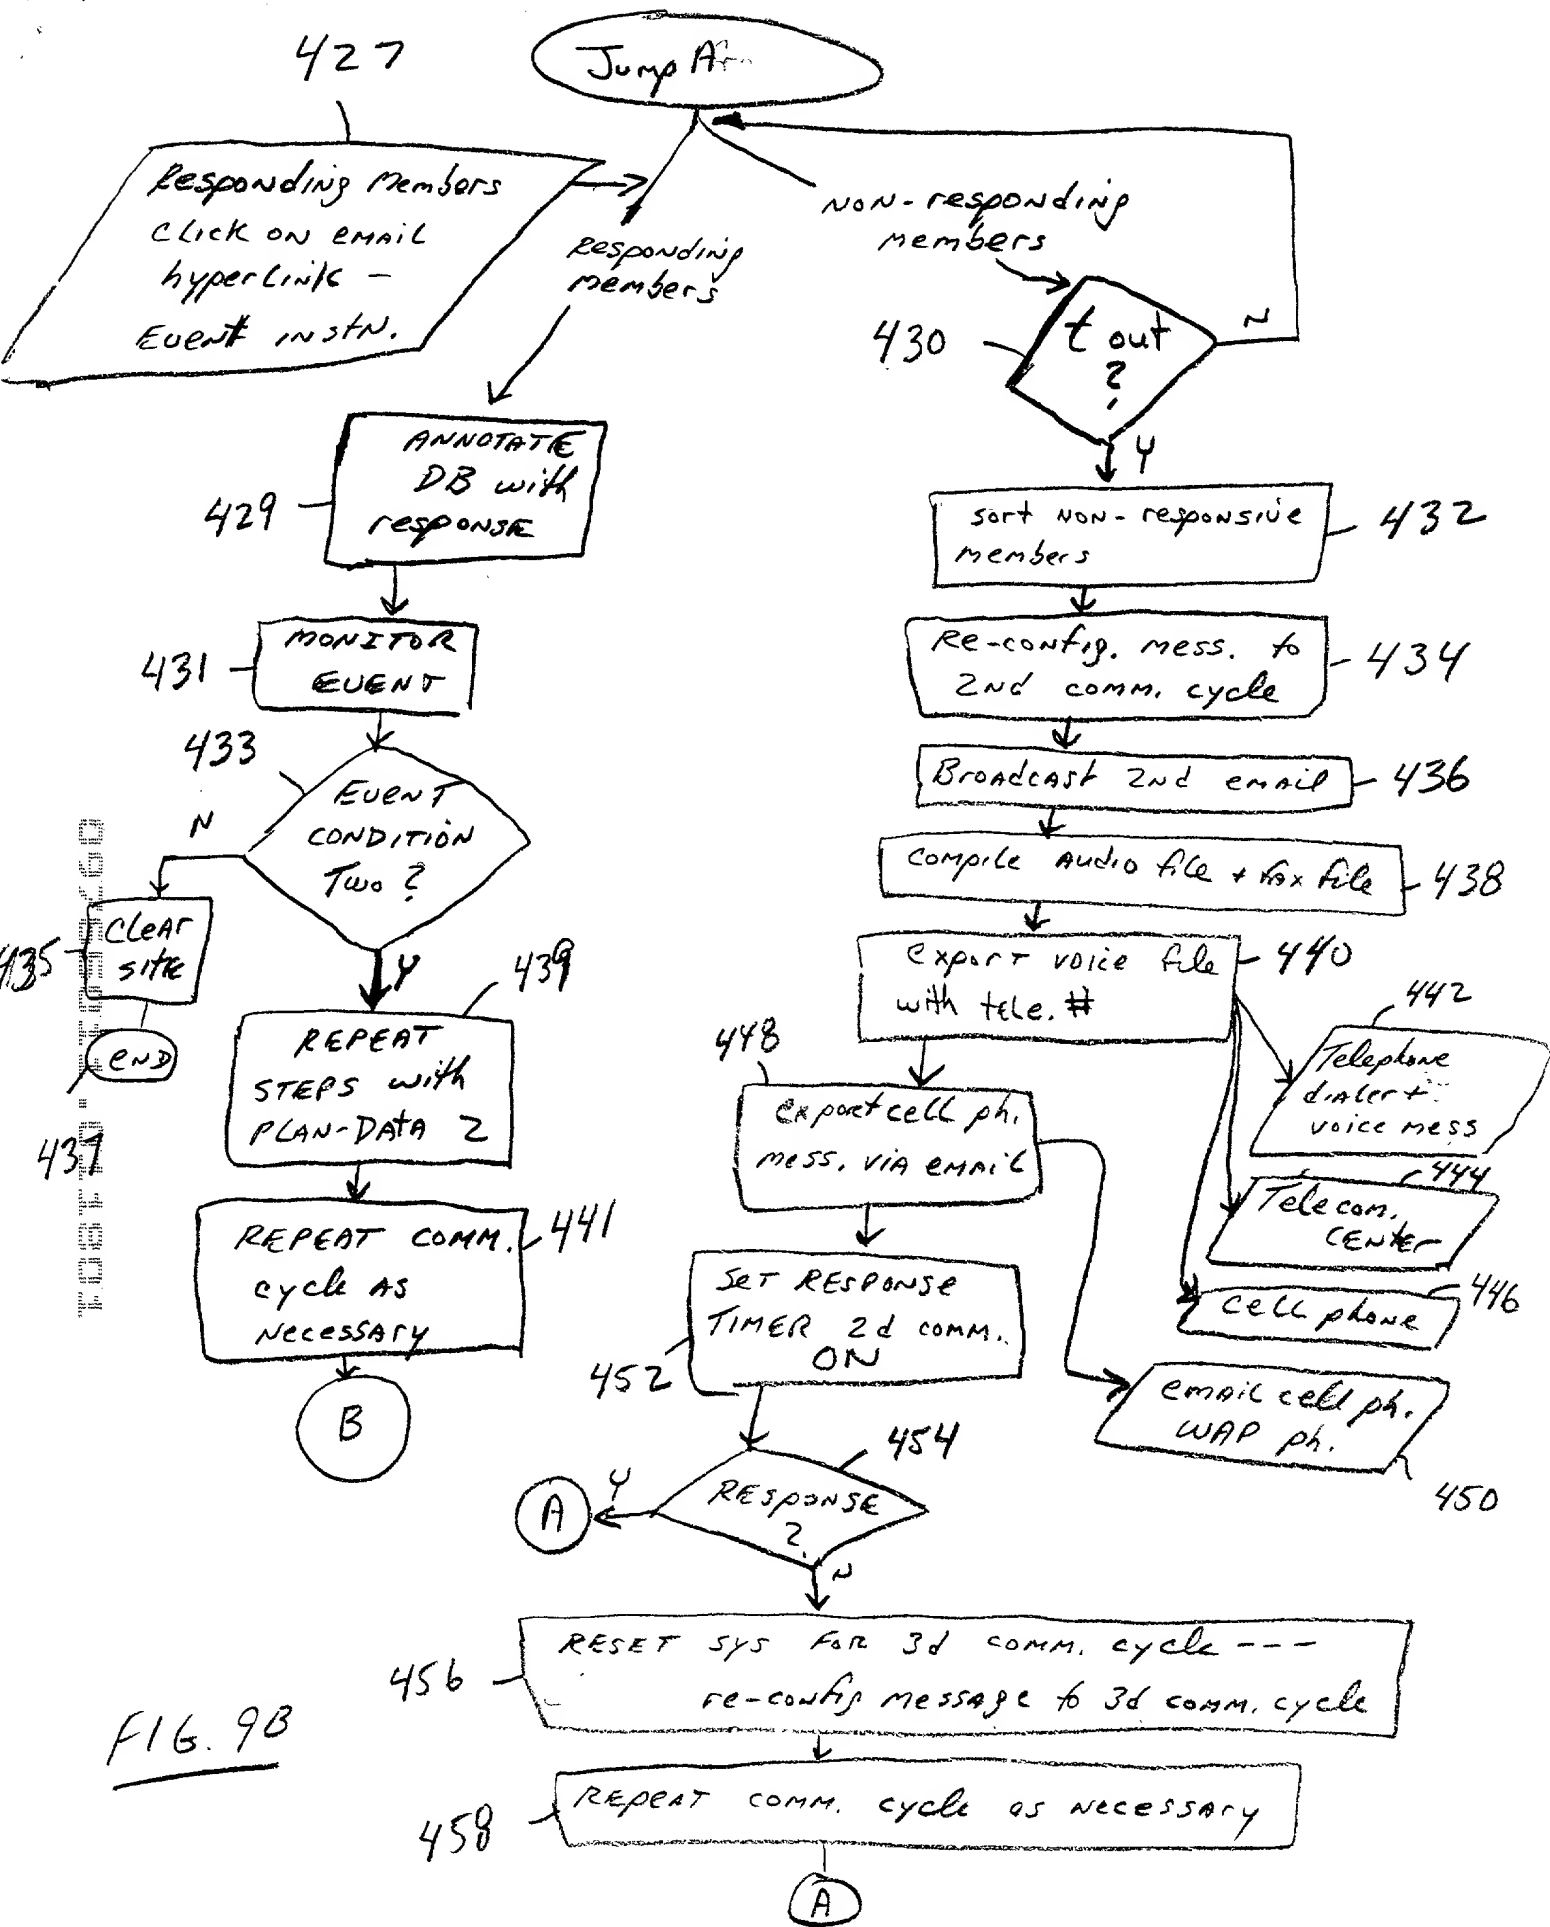 427
Jump A
Responding Members
click on email
hyperlink -
Event instn.
Responding
members
Non-responding
members
430
t out
?
N
Y
ANNOTATE
DB with
response
429
sort non-responsive
members
432
MONITOR
EVENT
431
Re-config. mess. to
2nd comm. cycle
434
433
EVENT
CONDITION
Two ?
N
Y
Broadcast 2nd email
436
compile Audio file + fax file
438
clear
site
435
END
437
439
REPEAT
STEPS with
PLAN-DATA 2
export voice file
with tele. #
440
442
Telephone
dialer +
voice mess
448
export cell ph.
mess. via email
444
Telecom.
CENTER
446
cell phone
REPEAT COMM.
cycle AS
Necessary
441
B
Set RESPONSE
TIMER 2d comm.
ON
452
email cell ph.
WAP ph.
450
454
RESPONSE
?
Y
A
N
RESET sys FOR 3d comm. cycle ---
re-config message to 3d comm. cycle
456
FIG. 9B
REPEAT comm. cycle as necessary
458
A